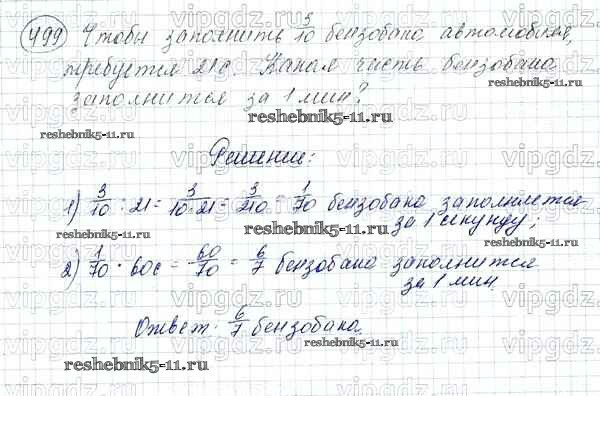 499 Чтобы заполнить 3/10 бензобака автомобиля,
требуется 21 с. Какая часть бензобака
заполнится за 1 мин?
reshebnik5-11.ru
Решение:
1) 3/10 : 21 = 3/10·21 = 3/210 = 1/70 бензобака заполняется
за 1 секунду;
reshebnik5-11.ru
2) 1/70 · 60с = 60/70 = 6/7 бензобака заполнится
за 1 мин.
Ответ: 6/7 бензобака.
reshebnik5-11.ru
vipgdz.ru